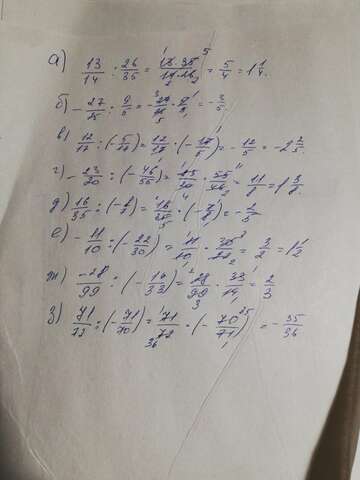 а) 13/14 : 26/35 = 13·35/14·26 = 5/4 = 1 1/4.
б) -27/25 : 9/5 = -27/25 · 5/9 = -3/5.
в) 12/17 : (-5/17) = 12/17 · (-17/5) = -12/5 = -2 2/5.
г) -23/20 : (-46/55) = 23/20 · 55/46 = 11/8 = 1 3/8.
д) 16/35 : (-8/7) = 16/35 · (-7/8) = -2/5.
е) -11/10 : (-22/30) = 11/10 · 30/22 = 3/2 = 1 1/2
ж) -28/99 : (-14/33) = 28/99 · 33/14 = 2/3
з) 71/72 : (-71/70) = 71/72 · (-70/71) = -35/36